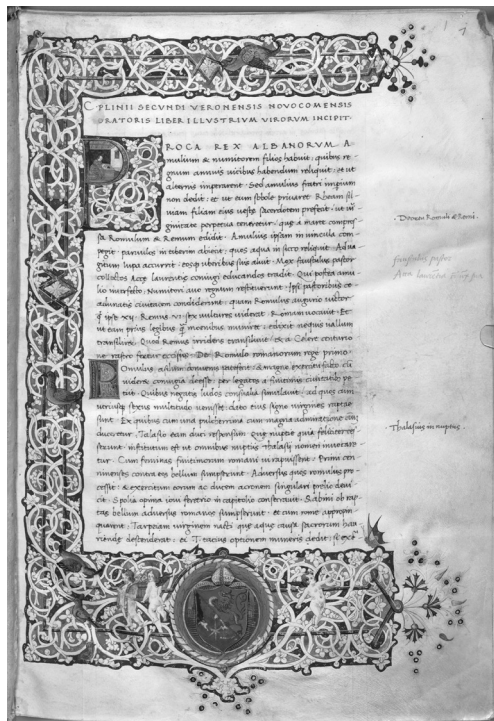 C. PLINII SECUNDI VERONENSIS NOVOCOMENSIS
ORATORIS LIBER ILLUSTRIUM VIRORUM INCIPIT.
PROCA REX ALBANORUM. A
mulium & numitorem filios habuit. quibus re
gnum annuis vicibus habendum reliquit. et ut
alternis imperarent. Sed amulius fratri imperium
non dedit. et ut eum sobole privaret Rheam sil
viam filiam eius vestæ sacerdotem prefecit. ut
perpetua teneretur. que a marte compres
sa Romulum & Remum edidit. Amulius ipsam in vincula com
pegit. parvulos in tiberim abiecit. quos aqua in sicco reliquit. Ad va
gitum lupa accurrit. eosque uberibus suis aluit. Mox faustulus pastor
collectos Acce laurentie coniugi educandos tradidit. Qui postea amu
lio interfecto. Numitori avo regnum restituerunt. Ipsi pastoribus co
adunatis civitatem condiderunt. quam Romulus augurio victor
ipse XII. Remus VI. vultures viderat. Romam vocavit. Et
ut eam prius legibus muniret. edixit nequis vallum
transiliret. Quod Remus irridens transilivit. & a Celere centurio
ne rastro fertur occisus. De Romulo romanorum rege primo.
ROmulus asilum convenis patefecit. & magno exercitu facto. cu
videret coniugia deesse. per legatos a finitimis civitatibus pe
tiit. Quibus negatis ludos consualia simulavit. ad quos cum
utriusque sexus multitudo venisset. dato suis signo virgines raptae
sunt. Ex quibus cum una pulcherrima cum magna admiratione
duceretur. Talasio eam duci responsum. Que nuptie quia feliciter ces
serant. institutum est ut omnibus nuptiis Thalasii nomen iteraretur
Cum feminas finitimorum romani vi rapuissent. Primi ce
ninenses contra eos bellum sumpserunt. Adversus quos romulus pro
cessit. & exercitum eorum ac ducem acronem singulari prelio devi
cit. Spolia opima iovi feretrio in capitolio consecravit. Sabini ob rap
tas bellum adversus romanos sumpserunt. et cum rome appropin
quarent. Tarpeiam virginem nacti que aque causa sacrorum hau
riende descenderat. ei T. tacius optionem muneris dedit
De ortu Romuli & Remi.
faustulus pastor
Acca laurentia
Thalasius in nuptiis.